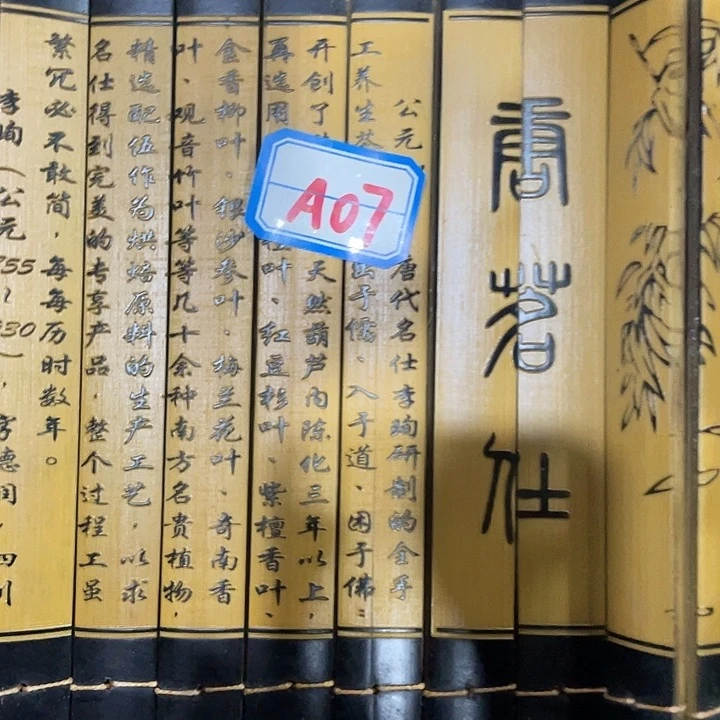 唐茗仕
公元 唐代名仕李珣研制的全手
工养生茶 出于儒、入于道、困于佛：
开创了 天然葫芦内陈化三年以上，
再选用 叶、红豆杉叶、紫檀香叶、
金香柳叶、银沙参叶、梅兰花叶、奇南香
叶、观音竹叶等等几十余种南方名贵植物，
精选配伍作为烘焙原料的生产工艺，以求
名仕得到完美的专享产品，整个过程工虽
繁冗必不敢简，每每历时数年。
李珣（公元855~930），字德润，四川
A07